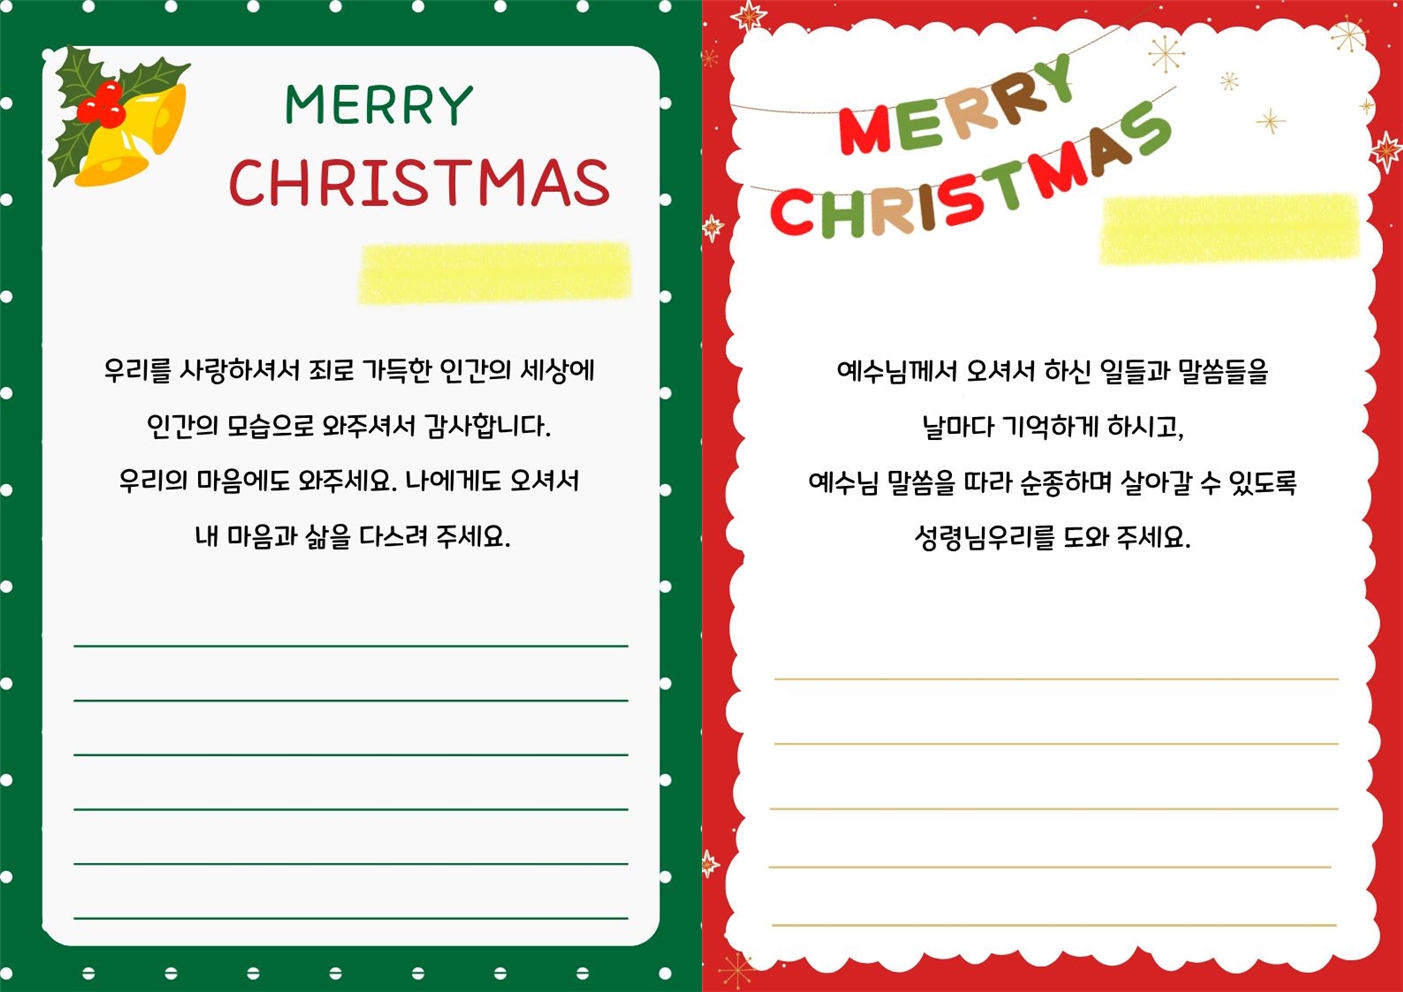 MERRY
CHRISTMAS
우리를 사랑하셔서 죄로 가득한 인간의 세상에
인간의 모습으로 와주셔서 감사합니다.
우리의 마음에도 와주세요. 나에게도 오셔서
내 마음과 삶을 다스려 주세요.
MERRY
CHRISTMAS
예수님께서 오셔서 하신 일들과 말씀들을
날마다 기억하게 하시고,
예수님 말씀을 따라 순종하며 살아갈 수 있도록
성령님우리를 도와 주세요.